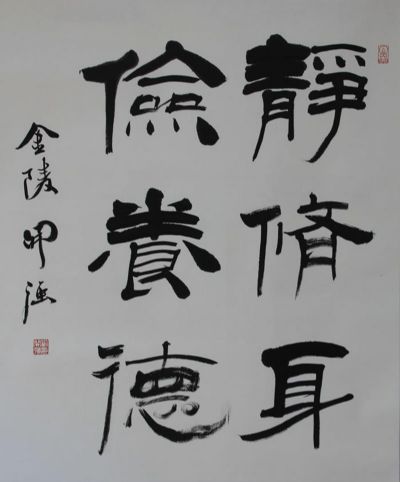 靜脩身
儉養德
金陵